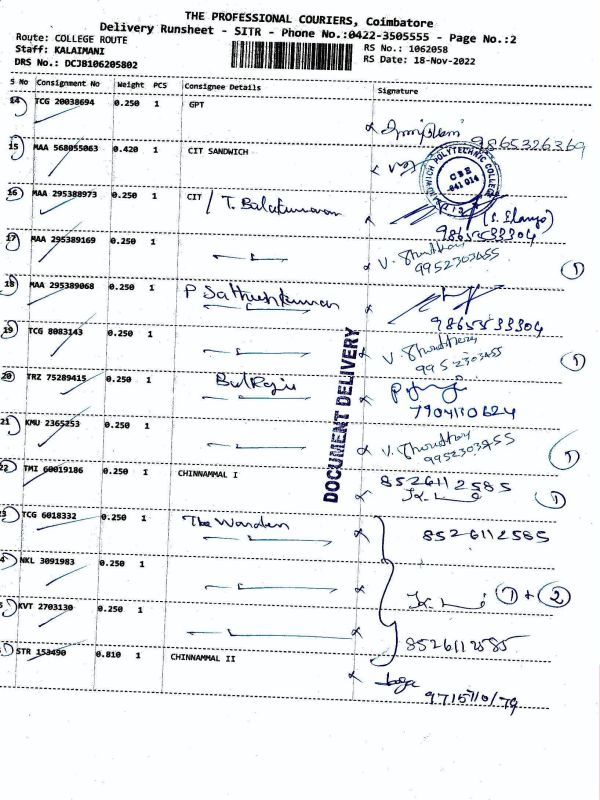 THE PROFESSIONAL COURIERS, Coimbatore
Delivery Runsheet - SITR - Phone No.:0422-3505555 - Page No.:2
Route: COLLEGE ROUTE
RS No.: 1062058
Staff: KALAIMANI
RS Date: 18-Nov-2022
DRS No.: DCJB106205802
S No Consignment No Weight PCS Consignee Details Signature
14 TCG 20038694 0.250 1 GPT
9865326369
15 MAA 568055063 0.420 1 CIT SANDWICH
POLYTECHNIC COLLEGE
CBE
641 014
16 MAA 295388973 0.250 1 CIT / T. Balakumaran
(S. Elango)
9865533304
17 MAA 295389169 0.250 1
9952303455 1
18 MAA 295389068 0.250 1 P Sathish kumar
9865533304
19 TCG 8083143 0.250 1
9952303455 1
20 TRZ 75289415 0.250 1 BalRaju
7904110624
21 KMU 2365253 0.250 1
9952303455 1
DOCUMENT DELIVERY
22 TMI 60019186 0.250 1 CHINNAMMAL I 8526112585 1
23 TCG 6018332 0.250 1 The Warden 8526112585
NKL 3091983 0.250 1
1 + 2
KVT 2703130 0.250 1
8526112585
STR 153490 0.810 1 CHINNAMMAL II
9715710179